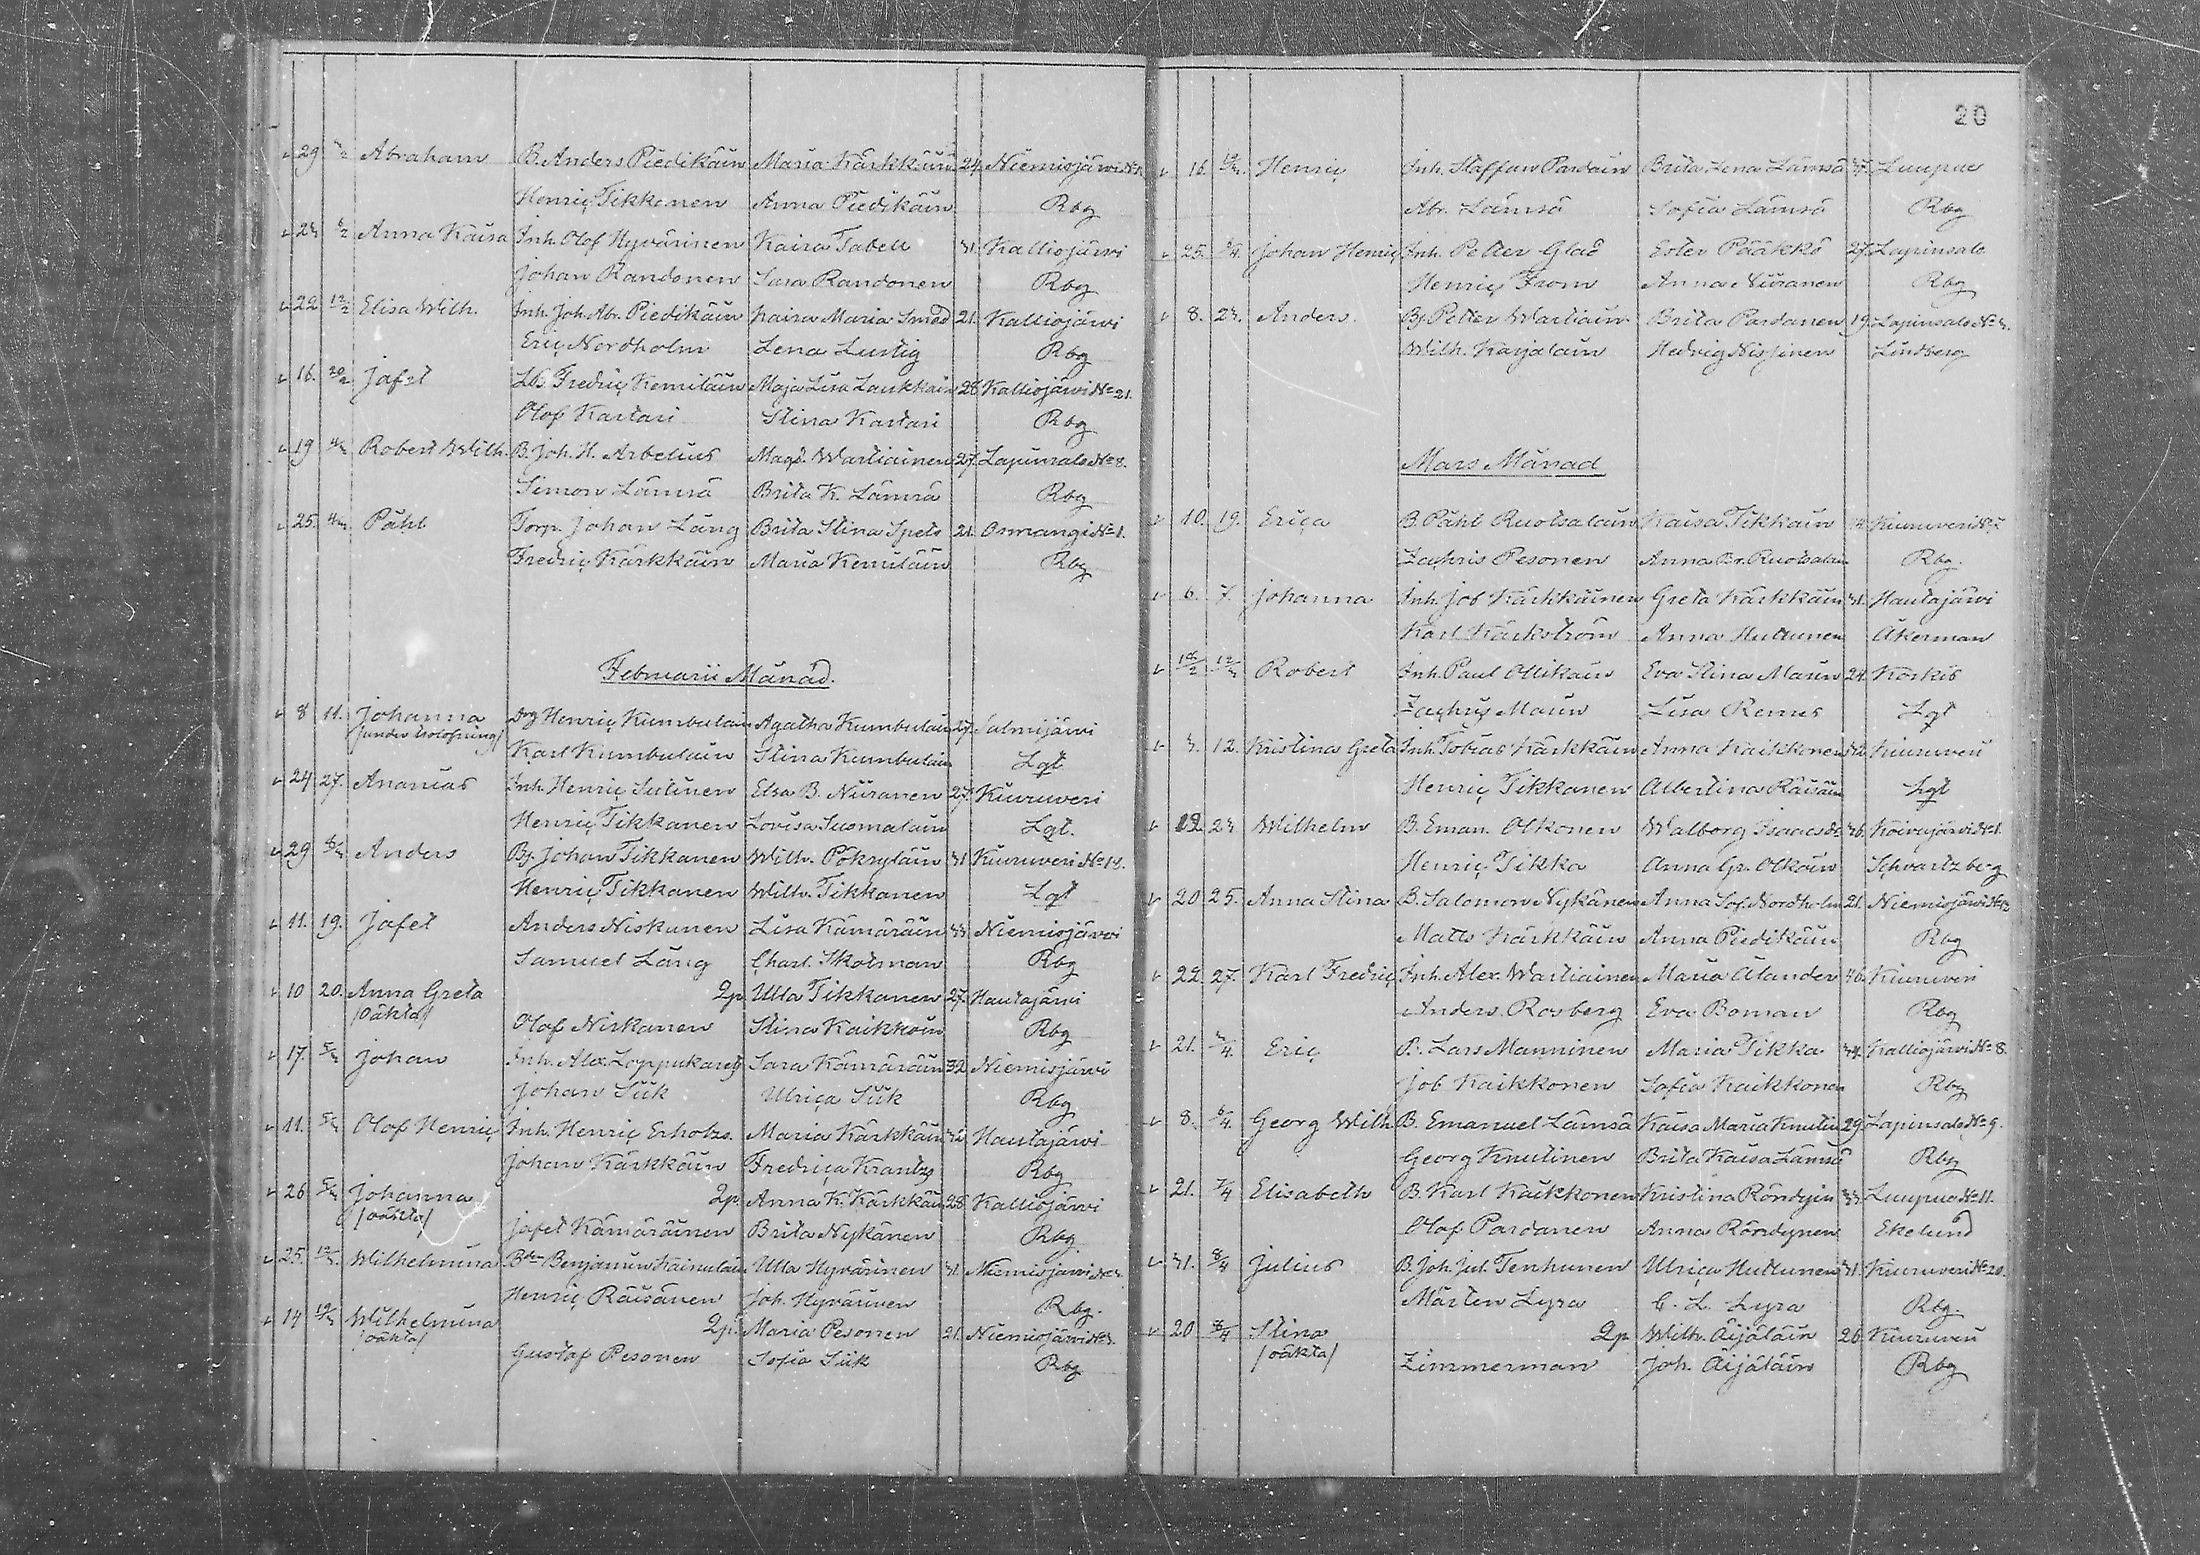 29 Abraham B. Anders Piedikäin Maria Kärkkäin 24. Niemisjärwi
Henriç Tikkanen Anna Piedikäin Rbg
Anna Kaisa Inh. Olof Hyvärinen Kaisa Tabell 31. Kalliojärwi
Johan Randonen Sara Randonen Rbg
22 12/2 Elisa Wilh. Inh. Joh. Abr. Piedikäin Kaisa Maria Smod 21. Kalliojärwi
Eriç Nordholm Lena Lustig Rbg
16. 20/2 Jafet Lb. Fredriç Kemiläin Maja Lisa Laukkain 28 Kalliojärwi No 21.
Olof Kastari Stina Kastari Rbg
19 4/3 Robert Wilh. B. Joh. H. Arbelius Magd. Wartiainen 27. Lapinsalo No 8.
Simon Lämsä Brita K. Lämsä Rbg
25. Påhl Torp. Johan Lång Brita Stina Spets 21. Osmangi No 1.
Fredriç Kärkkäin Maria Kemiläin Rbg
Februarii Månad.
8 11. Johanna Drg Henriç Kumbulain Agatha Kumbulain 27. Salmijärvi
/under trolofning/ Karl Kumbulain Stina Kumbulain Lgt
24 27. Ananias Inh. Henriç Sutinen Elsa B. Niiranen 27. Kiuruweri
Henriç Tikkanen Lovisa Suomalain Lgt.
29 6/3 Anders Bj. Johan Tikkanen Wilh. Pökryläin 31 Kiuruweri No 18.
Henriç Tikkanen Wilh. Tikkanen Lgt
11. 19. Jafet Anders Niskanen Lisa Kämäräin 33 Niemisjärvi
Samuel Lång Charl. Skotman Rbg
10 20. Anna Greta Qp Ulla Tikkanen 27. Hautajärvi
/oäkta/ Olof Niskanen Stina Kaikkoin Rbg
17. 5/3 Johan Inh. Alex. Loppukarg Sara Kämäräin 32 Niemisjärvi
Johan Siik Ulriça Siik Rbg
11. 5/3 Olof Henriç Inh. Henriç Erholzs. Maria Kärkkäin 32 Hautajärvi
Johan Kärkkäin Fredriça Krantz Rbg
26 5/3 Johanna Qp. Anna K. Kärkkäin 28 Kalliojärvi
/oäkta/ Jafet Kämäräinen Brita Nykänen Rbg
25. 12/3 Wilhelmina Benjamin Kainulain Ulla Hyvärinen 31. Niemisjärwi
Henriç Räisänen Joh. Hyvärinen Rbg.
14 19/3 Wilhelmina Qp. Maria Pesonen 21. Niemisjärwi
/oäkta/ Gustaf Pesonen Sofia Siik Rbg
20
16. Henriç Inh. Staffan Pardain Brita Lena Lämsä 37. Luupue
Abr. Lämsä Sofia Lämsä Rbg
25. Johan Henriç Inh. Petter Glad Ester Pääkkö 27. Lapinsalo
Henriç From Anna Niiranen Rbg
8. 23. Anders. Bj. Petter Wartiain Brita Pardanen 19. Lapinsalo No 3.
Wilh. Karjalain Hedvig Nissinen Lindberg
Mars Månad
10. 19. Eriça B. Påhl Ruotsalain Kaisa Tikkain Kiuruweri
Zachris Pesonen Anna Br. Ruotsalain Rbg.
6. 7. Johanna Inh. Job Kärkkäinen Greta Kärkkäin 31. Hautajärvi
Karl Käckström Anna Huttunen Åkerman
18/2 12/3 Robert Inh. Paul Ollikain Eva Stina Maun 24. Koskis
Zachris Maun Lisa Remes Lgt
3. 12. Kristina Greta Inh. Tobias Kärkkäin Anna Kaikkonen 32. Kiuruweri
Henriç Tikkanen Albertina Räisäin Lgt
19. 23 Wilhelm B. Eman. Olkonen Walborg Isaacsdr 36. Koivujärwi No 1.
Henriç Tikka Anna Gr. Olkoin Schvartzberg
20 25. Anna Stina B. Salomon Nykänen Anna Sof. Nordholm 21. Niemisjärwi No 12
Matts Kärkkäin Anna Piedikäin Rbg
22. 27. Karl Fredriç Inh. Alex. Wartiainen Maria Ålander 46. Kiuruweri
Anders Rosberg Eva Boman Rbg
21. Eriç B. Lars Manninen Maria Tikka 34. Kalliojärwi No 8.
Job Kaikkonen Sofia Kaikkonen Rbg
8. 6/4. Georg Wilh. B. Emanuel Lämsä Kaisa Maria Knutin 29. Lapinsalo No 9.
Georg Knutinen Brita Kaisa Lämsä Rbg
21. 7/4 Elisabeth B. Karl Kaikkonen Kristina Röndyin 33. Luupue No 11.
Olof Pardanen Anna Röndynen Ekelund
31. 8/4 Julius B. Joh. Jul. Tenhunen Ulriça Huttunen 31. Kiuruweri No 20.
Mårten Lyra C. L. Lyra Rbg.
20 8/4 Stina Qp Wilh. Äijäläin 26. Kiuruweri
/oäkta/ Zimmerman Joh. Äijäläin Rbg